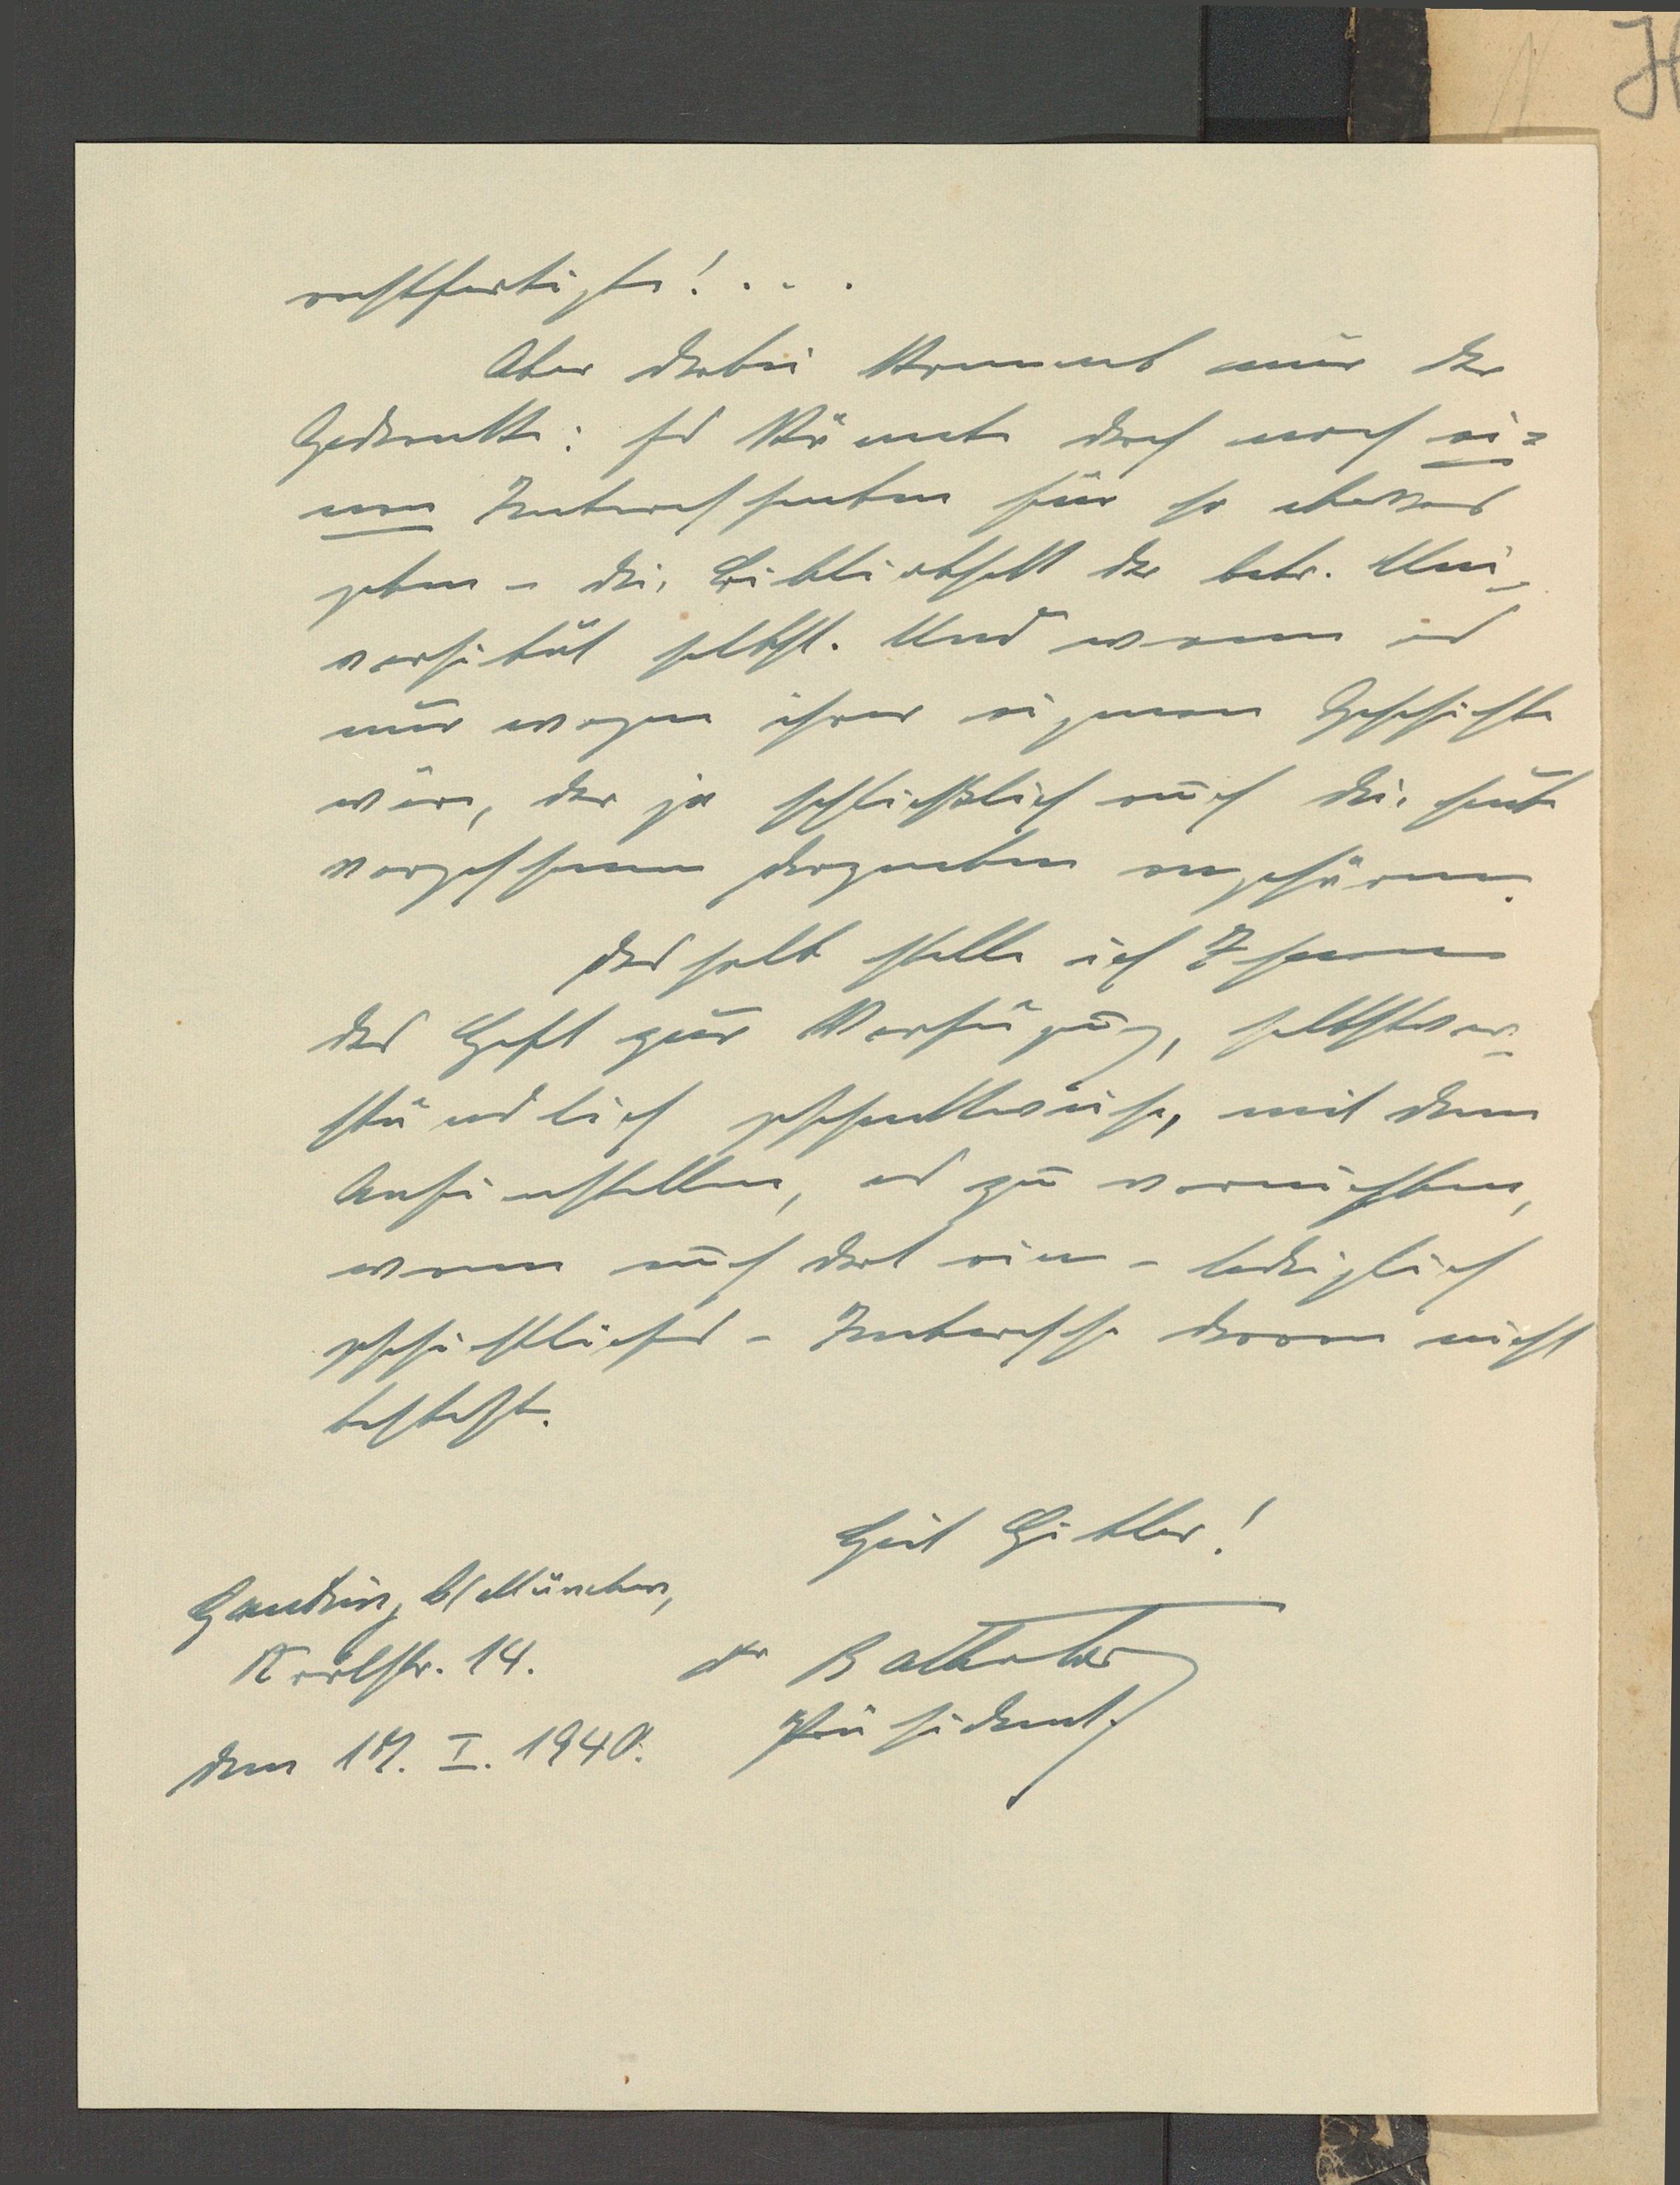 rechtfertigte! . . . .
Aber dabei kommt mir der
Gedanke: Es könnte doch noch ei=
nen Interessenten für so etwas
geben – die Bibliothek der betr. Uni-
versität selbst. Und wenn es
nur wegen ihrer eigenen Geschichte
wäre, der ja schließlich auch die heute
vergessenen Dozenten angehören.
Deshalb stelle ich Ihnen
das Heft zur Verfügung, selbstver-
ständlich geschenkweise, mit dem
Anheimstellen, es zu vernichten,
wenn auch dort ein – lediglich
geschichtliches – Interesse daran nicht
besteht.
Heil Hitler!
Gauting b/ München,
Karlstr. 14.
Dr
Präsident.
den 17. I. 1940.